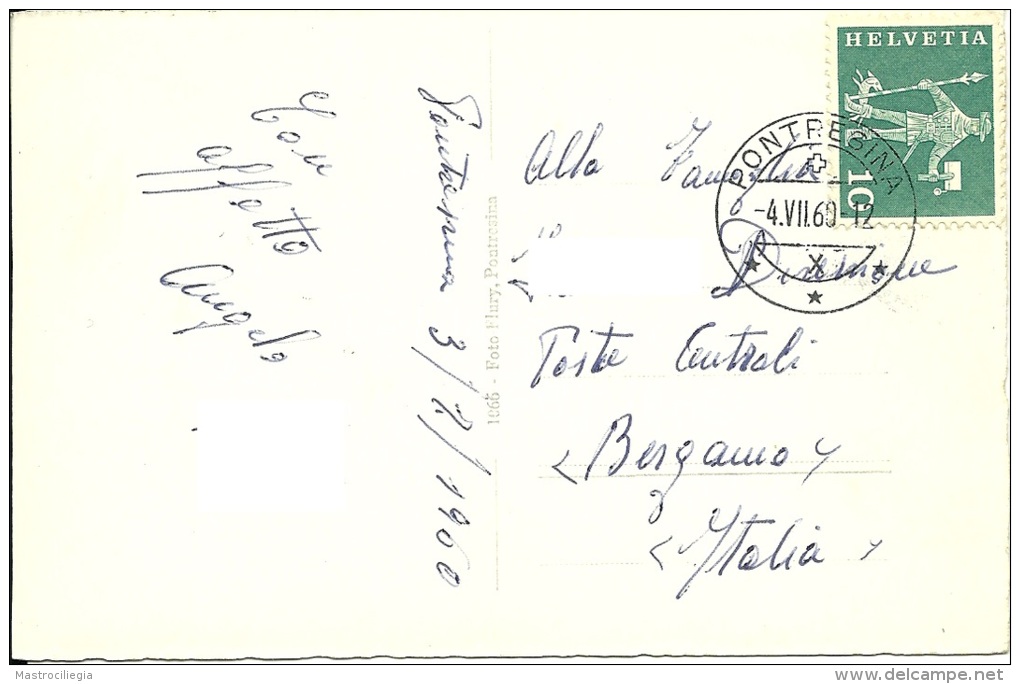 Con
affetto
Angelo
Pontresina 3/7/1960
1966 - Foto Flury, Pontresina
HELVETIA
10
PONTRESINA
-4.VII.60-12
X
Alla Famiglia
Poste Centrali
Bergamo
Italia
Mastrociliegia
www.delcampe.net